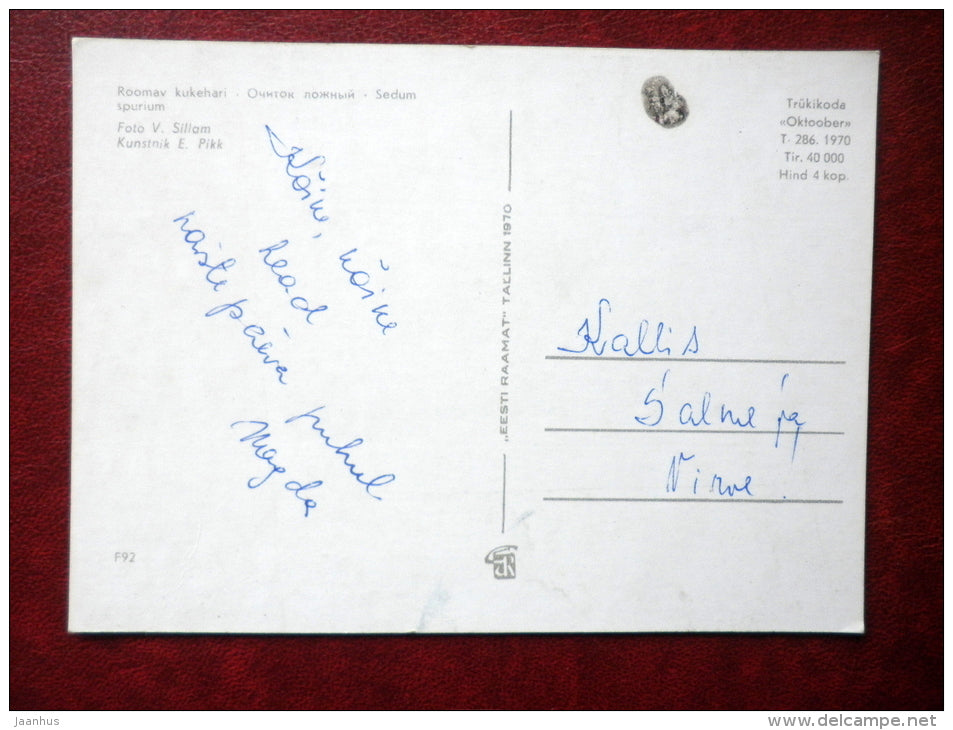 Roomav kukehari · Очиток ложный · Sedum
spurium
Foto V. Sillam
Kunstnik E. Pikk
Kõike, kõike
head
naistepäeva puhul
Magda
F92
„EESTI RAAMAT" TALLINN 1970
Trükikoda
«Oktoober»
T. 286. 1970
Tir. 40 000
Hind 4 kop.
Kallis
Salme ja
Virve.
jaanhus
www.delcampe.net